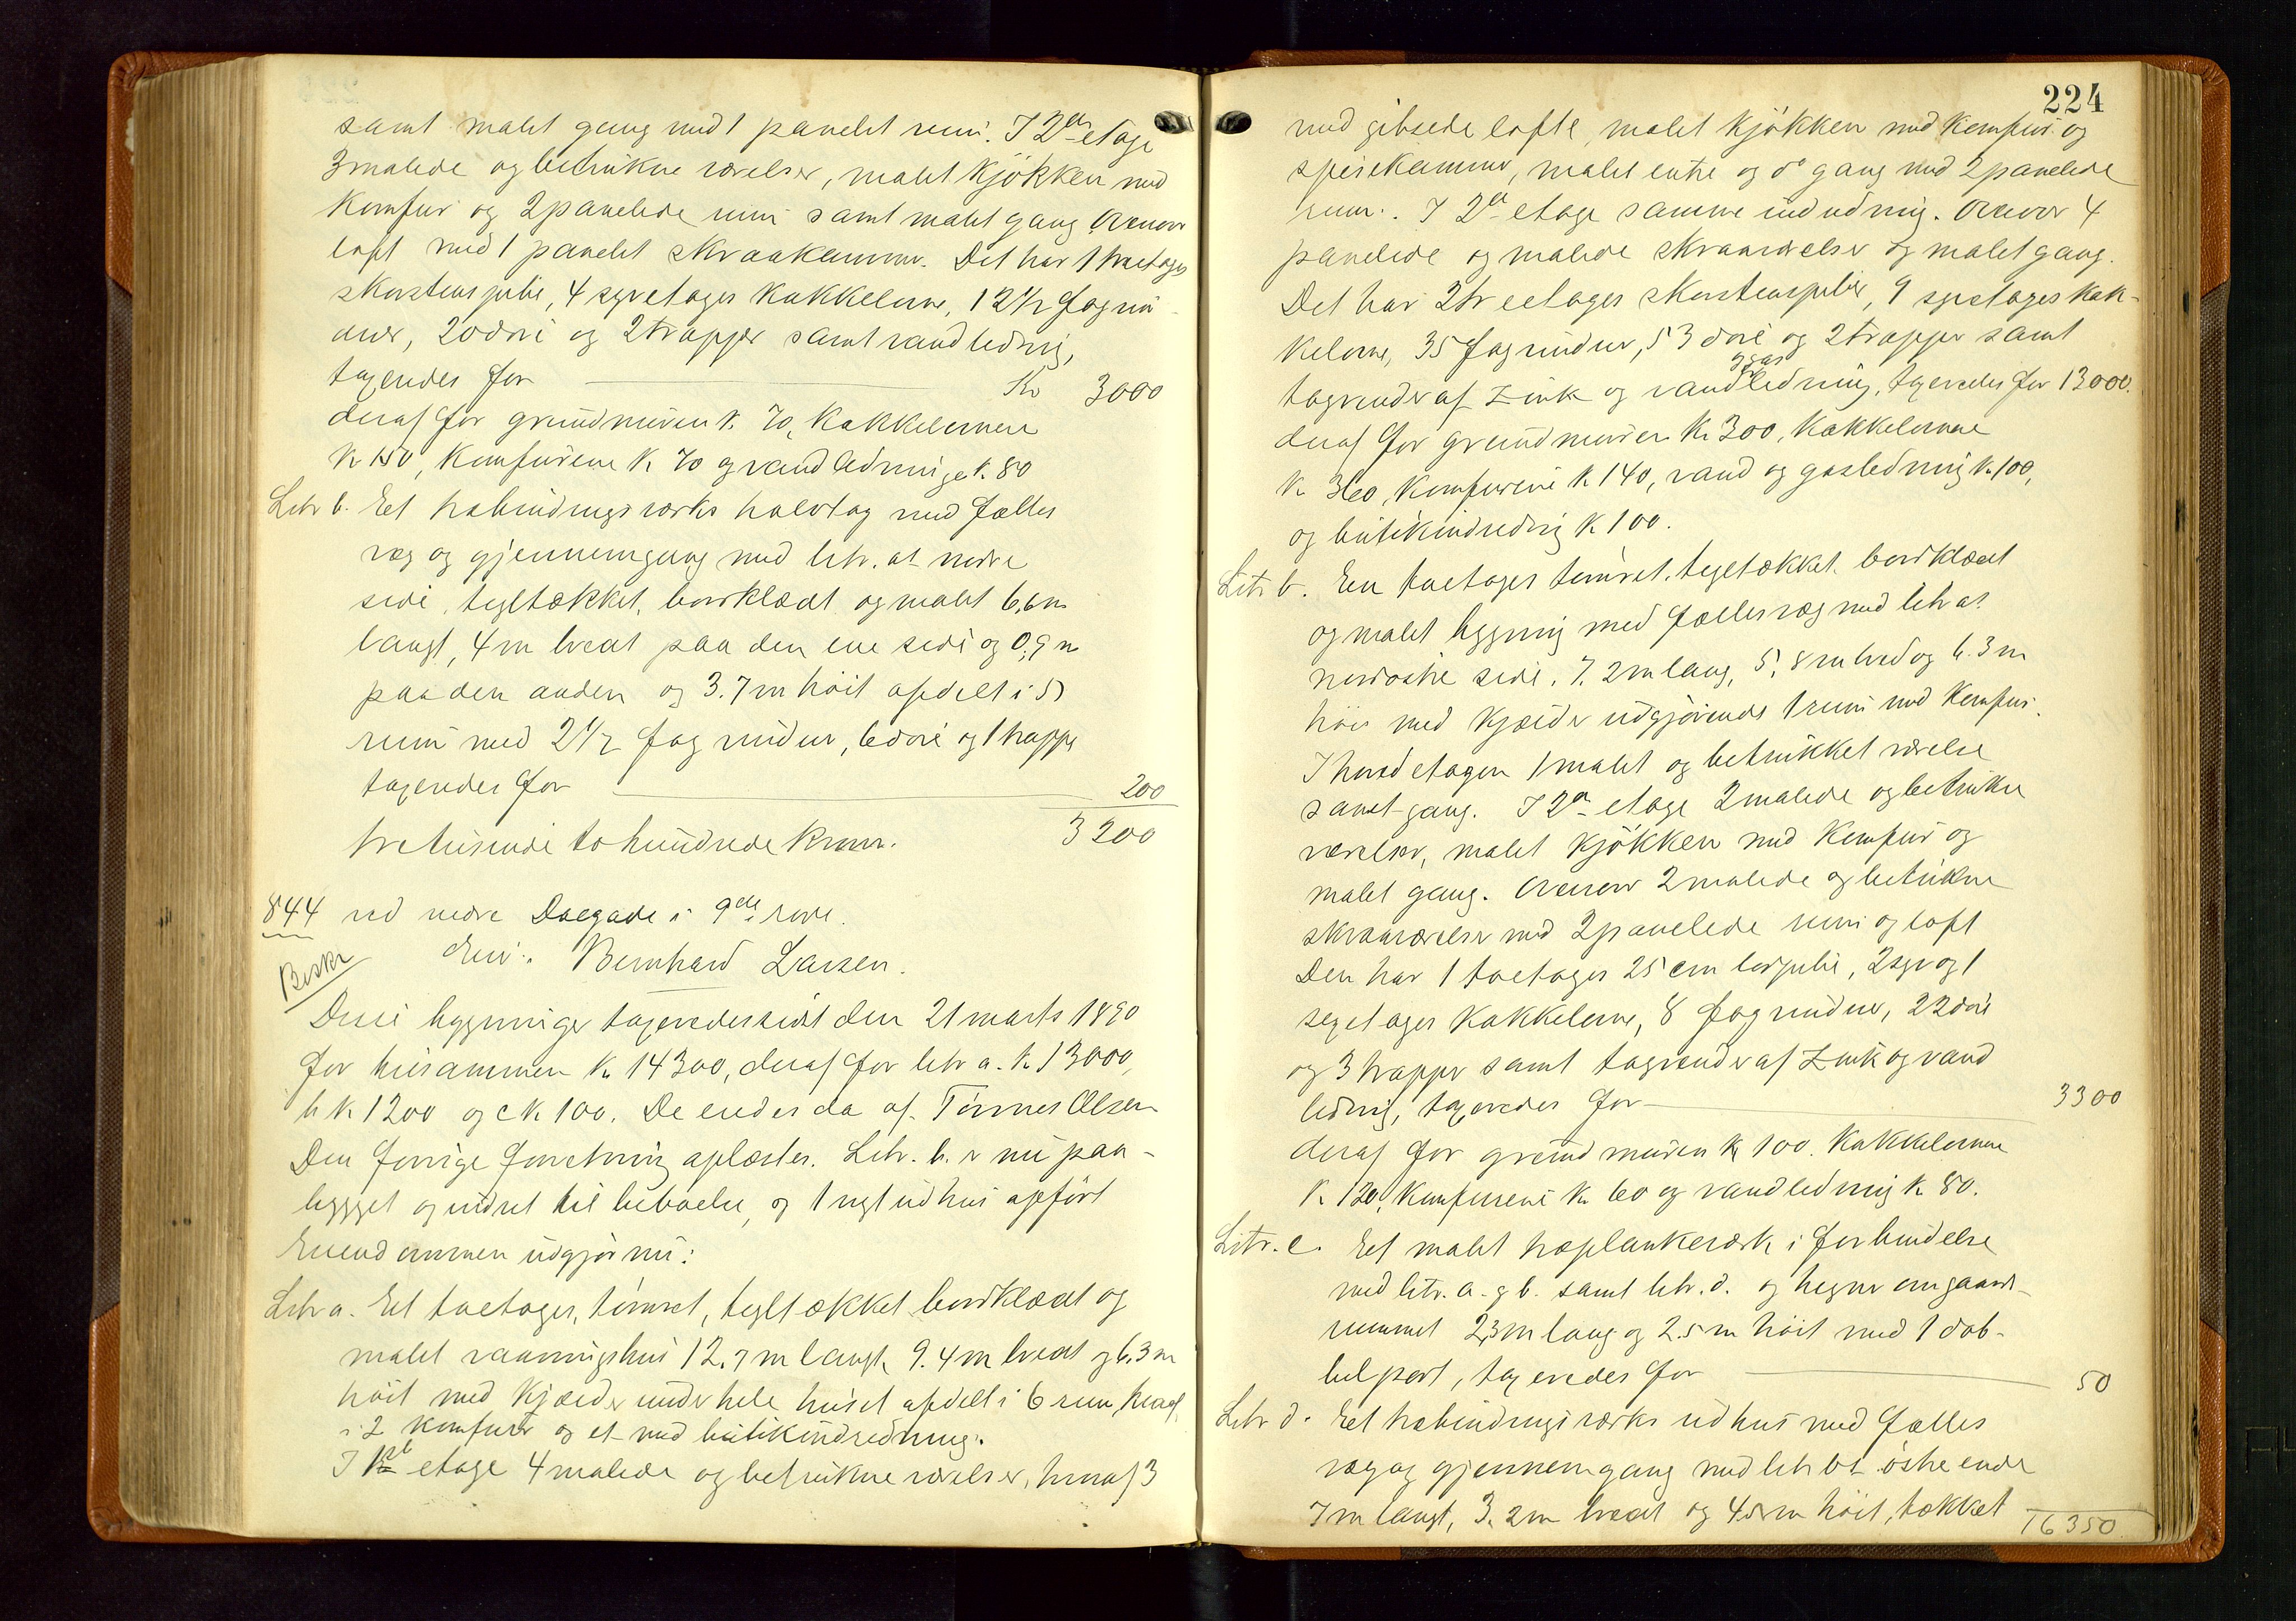 samt malet gang med 1 panelet rum. I 2den etage
3 malede og betrukne værelser, malet kjøkken med
komfur og 2 panelede rum samt malet gang Ovenover
loft med 1 panelet skraakammer. Det har 1 treetages
skorstenspibe, 4 syvetages kakkelovne, 12 1/2 fag vin
duer, 20 døre og 2 trapper samt vandledning,
taxeredes for Kr 3000
deraf for grundmuren K. 70, kakkelovnene
K 150, komfurene K 70 og vandledninge K. 80
Litr b. Et halvbindingsværks halvtag med fælles
væg og gjennemgang med litr. a's nedre
side, tegltækket, bordklædt og malet 6,6 m
langt, 4 m bredt paa den ene side og 0,9 m
paa den anden og 3.7 m høit afdelt i 5
rum med 2 1/2 fag vinduer, 6 døre og 1 trappe
taxeredes for 200
tretusende to hundrede Kroner. 3200
844 ved nedre Dalgade i 9de rode.
Beskr Eier: Bernhard Larsen.
Disse bygninger taxeredes sidst den 21 marts 1890
for tilsammen K. 14300, deraf for litr a. K. 13000,
b K 1200 og c K 100. De eiedes da af Tønnes Olsen
Den forrige forretning oplæstes. Litr. b. er nu paa-
bygget og indret til beboelse, og 1 nyt udhus opført
Eiendommen udgjør nu:
Litr a. Et toetages, tømret, tegltækket bordklædt og
malet vaaningshus 12.7 m langt, 9.4 m bredt og 6,3 m
høit med kjælder under hele huset afdelt i 6 rum, hvoraf
i 2 komfurer og et med butikindredning.
I 1ste etage 4 malede og betrukne værelser, hvoraf 3
224
med gibsede lofte, malet kjøkken med komfur og
spisekammer, malet entre og do gang med 2 panelede
rum. I 2den etage samme indredning. Ovenover 4
panelede og malede skraaværelser og malet gang.
Det har 2 treetages skorstenspiber, 9 syvetages kak-
kelovne, 35 fag vinduer, 53 døre og 2 trapper samt
tagrender af zink og vand og gasledning, taxeredes for 13000.
deraf for grundmuren K. 300, kakkelovnene
K. 360, komfurene K 140, vand og gasledning K. 100,
og butikindredning K 100.
Litr b. En toetages tømret, tegltækket bordklædt
og malet bygning med fælles væg med litr a's
nordøstre side, 7,2 m lang, 5,8 m bred og 6.3 m
høi med kjælder udgjørende 1 rum med komfur.
I hovedetagen 1 malet og betrukket værelse
samt gang. I 2den etage 2 malede og betrukne
værelser, malet kjøkken med komfur og
malet gang. Ovenover 2 malede og betrukne
skraaværelser med 2 panelede rum og loft
Den har 1 toetages 25 cm pibe, 2 syv og 1
sexetages kakkelovne, 8 fag vinduer, 22 døre
og 3 trapper samt tagrender af zink og vand
ledning, taxeredes for 3300
deraf for grundmuren K 100. Kakkelovnene
K 120, komfurene K. 60 og vandledning K 80.
Litr. c. Et malet træplankeværk i forbindelse
med litr. a. og b. samt litr. d. og hegner om gaards-
rummet 2,3 m lang og 2.5 m høit med 1 dob-
belport, taxeredes for 50
Litr d. Et halvbindingsværks udhus med fælles
væg og gjennemgang med litr b's østre ende
7 m langt, 3.2 m bredt og 4.5 m høit, tækket
16350.